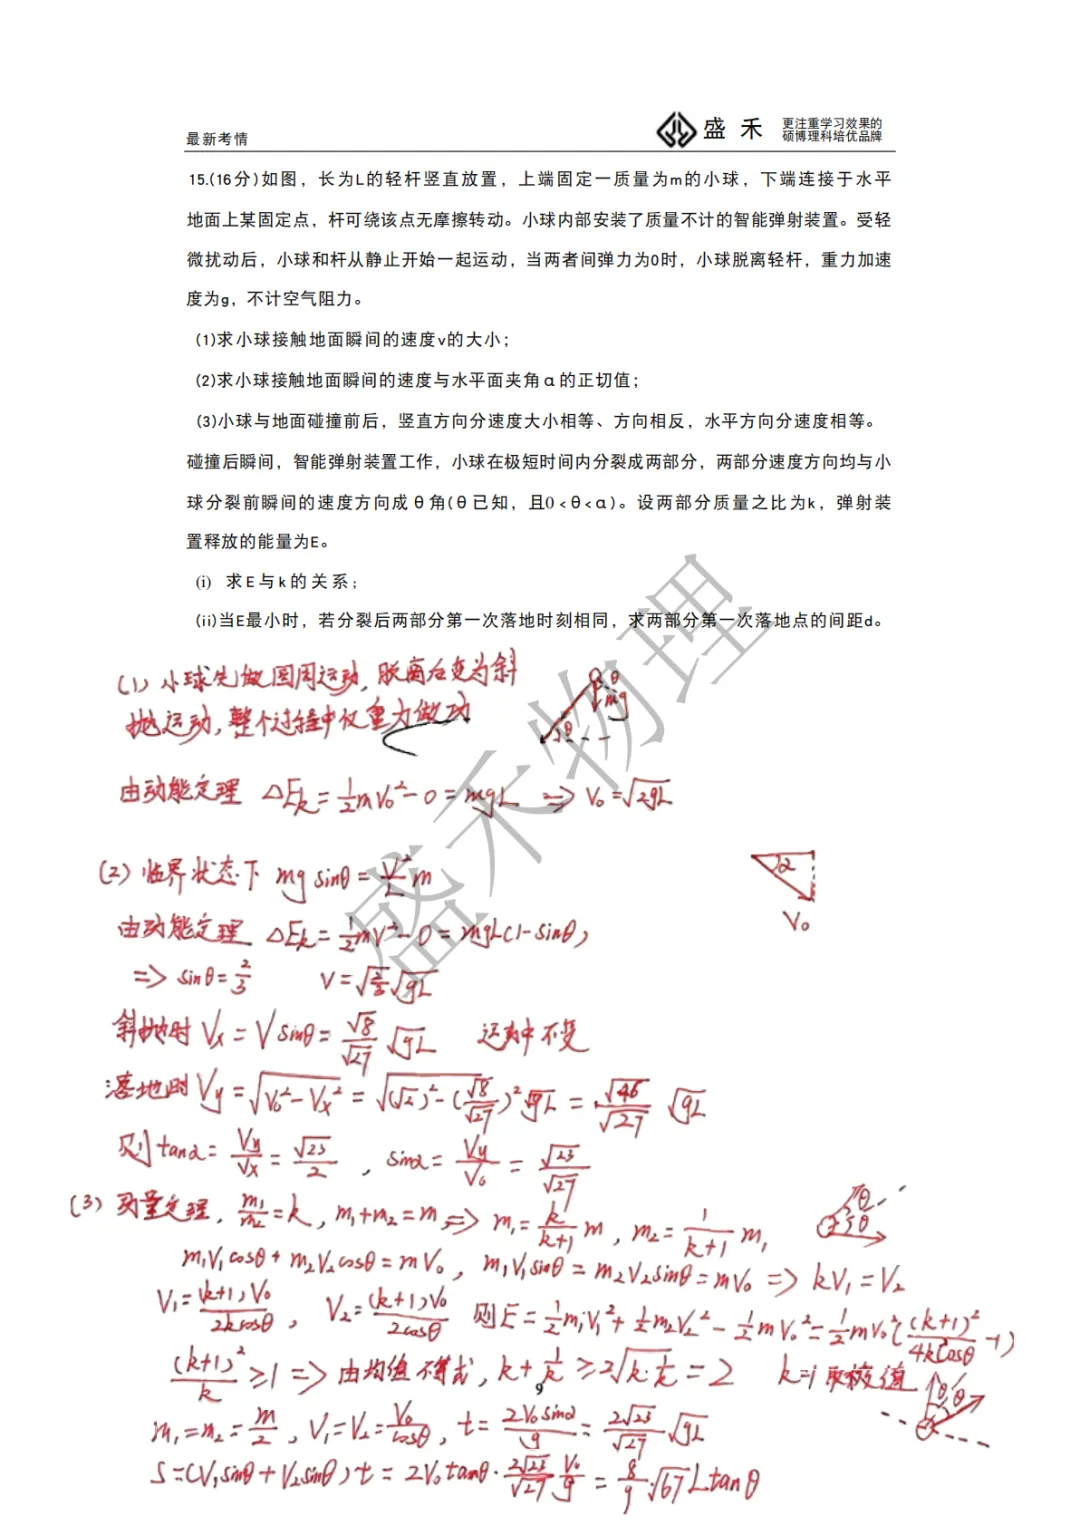 最新考情
盛禾
更注重学习效果的
硕博理科培优品牌
15.(16分)如图，长为L的轻杆竖直放置，上端固定一质量为m的小球，下端连接于水平
地面上某固定点，杆可绕该点无摩擦转动。小球内部安装了质量不计的智能弹射装置。受轻
微扰动后，小球和杆从静止开始一起运动，当两者间弹力为0时，小球脱离轻杆，重力加速
度为g，不计空气阻力。
(1)求小球接触地面瞬间的速度v的大小；
(2)求小球接触地面瞬间的速度与水平面夹角α的正切值；
(3)小球与地面碰撞前后，竖直方向分速度大小相等、方向相反，水平方向分速度相等。
碰撞后瞬间，智能弹射装置工作，小球在极短时间内分裂成两部分，两部分速度方向均与小
球分裂前瞬间的速度方向成θ角(θ已知，且0<θ<α)。设两部分质量之比为k，弹射装
置释放的能量为E。
(i) 求E与k的关系；
(ii)当E最小时，若分裂后两部分第一次落地时刻相同，求两部分第一次落地点的间距d。
盛禾物理
(1) 小球先做圆周运动，脱离后变为斜
抛运动，整个过程中仅重力做功
θ
mg
θ
由动能定理 ΔEk=½mV₀²-0=mgL ⇒ V₀=√2gL
(2) 临界状态下 mg sinθ=V²/L m
α
V₀
由动能定理 ΔEk=½mV²-0=mgL(1-sinθ)
⇒ sinθ=2/3 V=√(2/3)√gL
斜抛时 Vx=V sinθ=√8/√27 √gL 运动中不变
落地时 Vy=√(V₀²-Vx²)=√((√2)²-(√8/√27)²)√gL=√46/√27 √gL
则 tanα=Vy/Vx=√23/2，sinα=Vy/V₀=√23/√27
(3) 动量定理，m₁/m₂=k，m₁+m₂=m ⇒ m₁=k/(k+1) m，m₂=1/(k+1) m，
θ
θ
m₁V₁cosθ+m₂V₂cosθ=mV₀，m₁V₁sinθ=m₂V₂sinθ=mV₀ ⇒ kV₁=V₂
V₁=(k+1)V₀/2kcosθ，V₂=(k+1)V₀/2cosθ 则E=½m₁V₁²+½m₂V₂²-½mV₀²=½mV₀²((k+1)²/4kcos²θ-1)
(k+1)²/k≥1 ⇒ 由均值不等式，k+1/k≥2√(k·1/k)=2 k=1取极值
9
θ θ
m₁=m₂=m/2，V₁=V₂=V₀/cosθ，t=2V₀sinα/g=2√23/√27 √gL
S=(V₁sinθ+V₂sinθ)t=2V₀tanθ·2√23/√27 V₀/g=8/9 √67 L tanθ